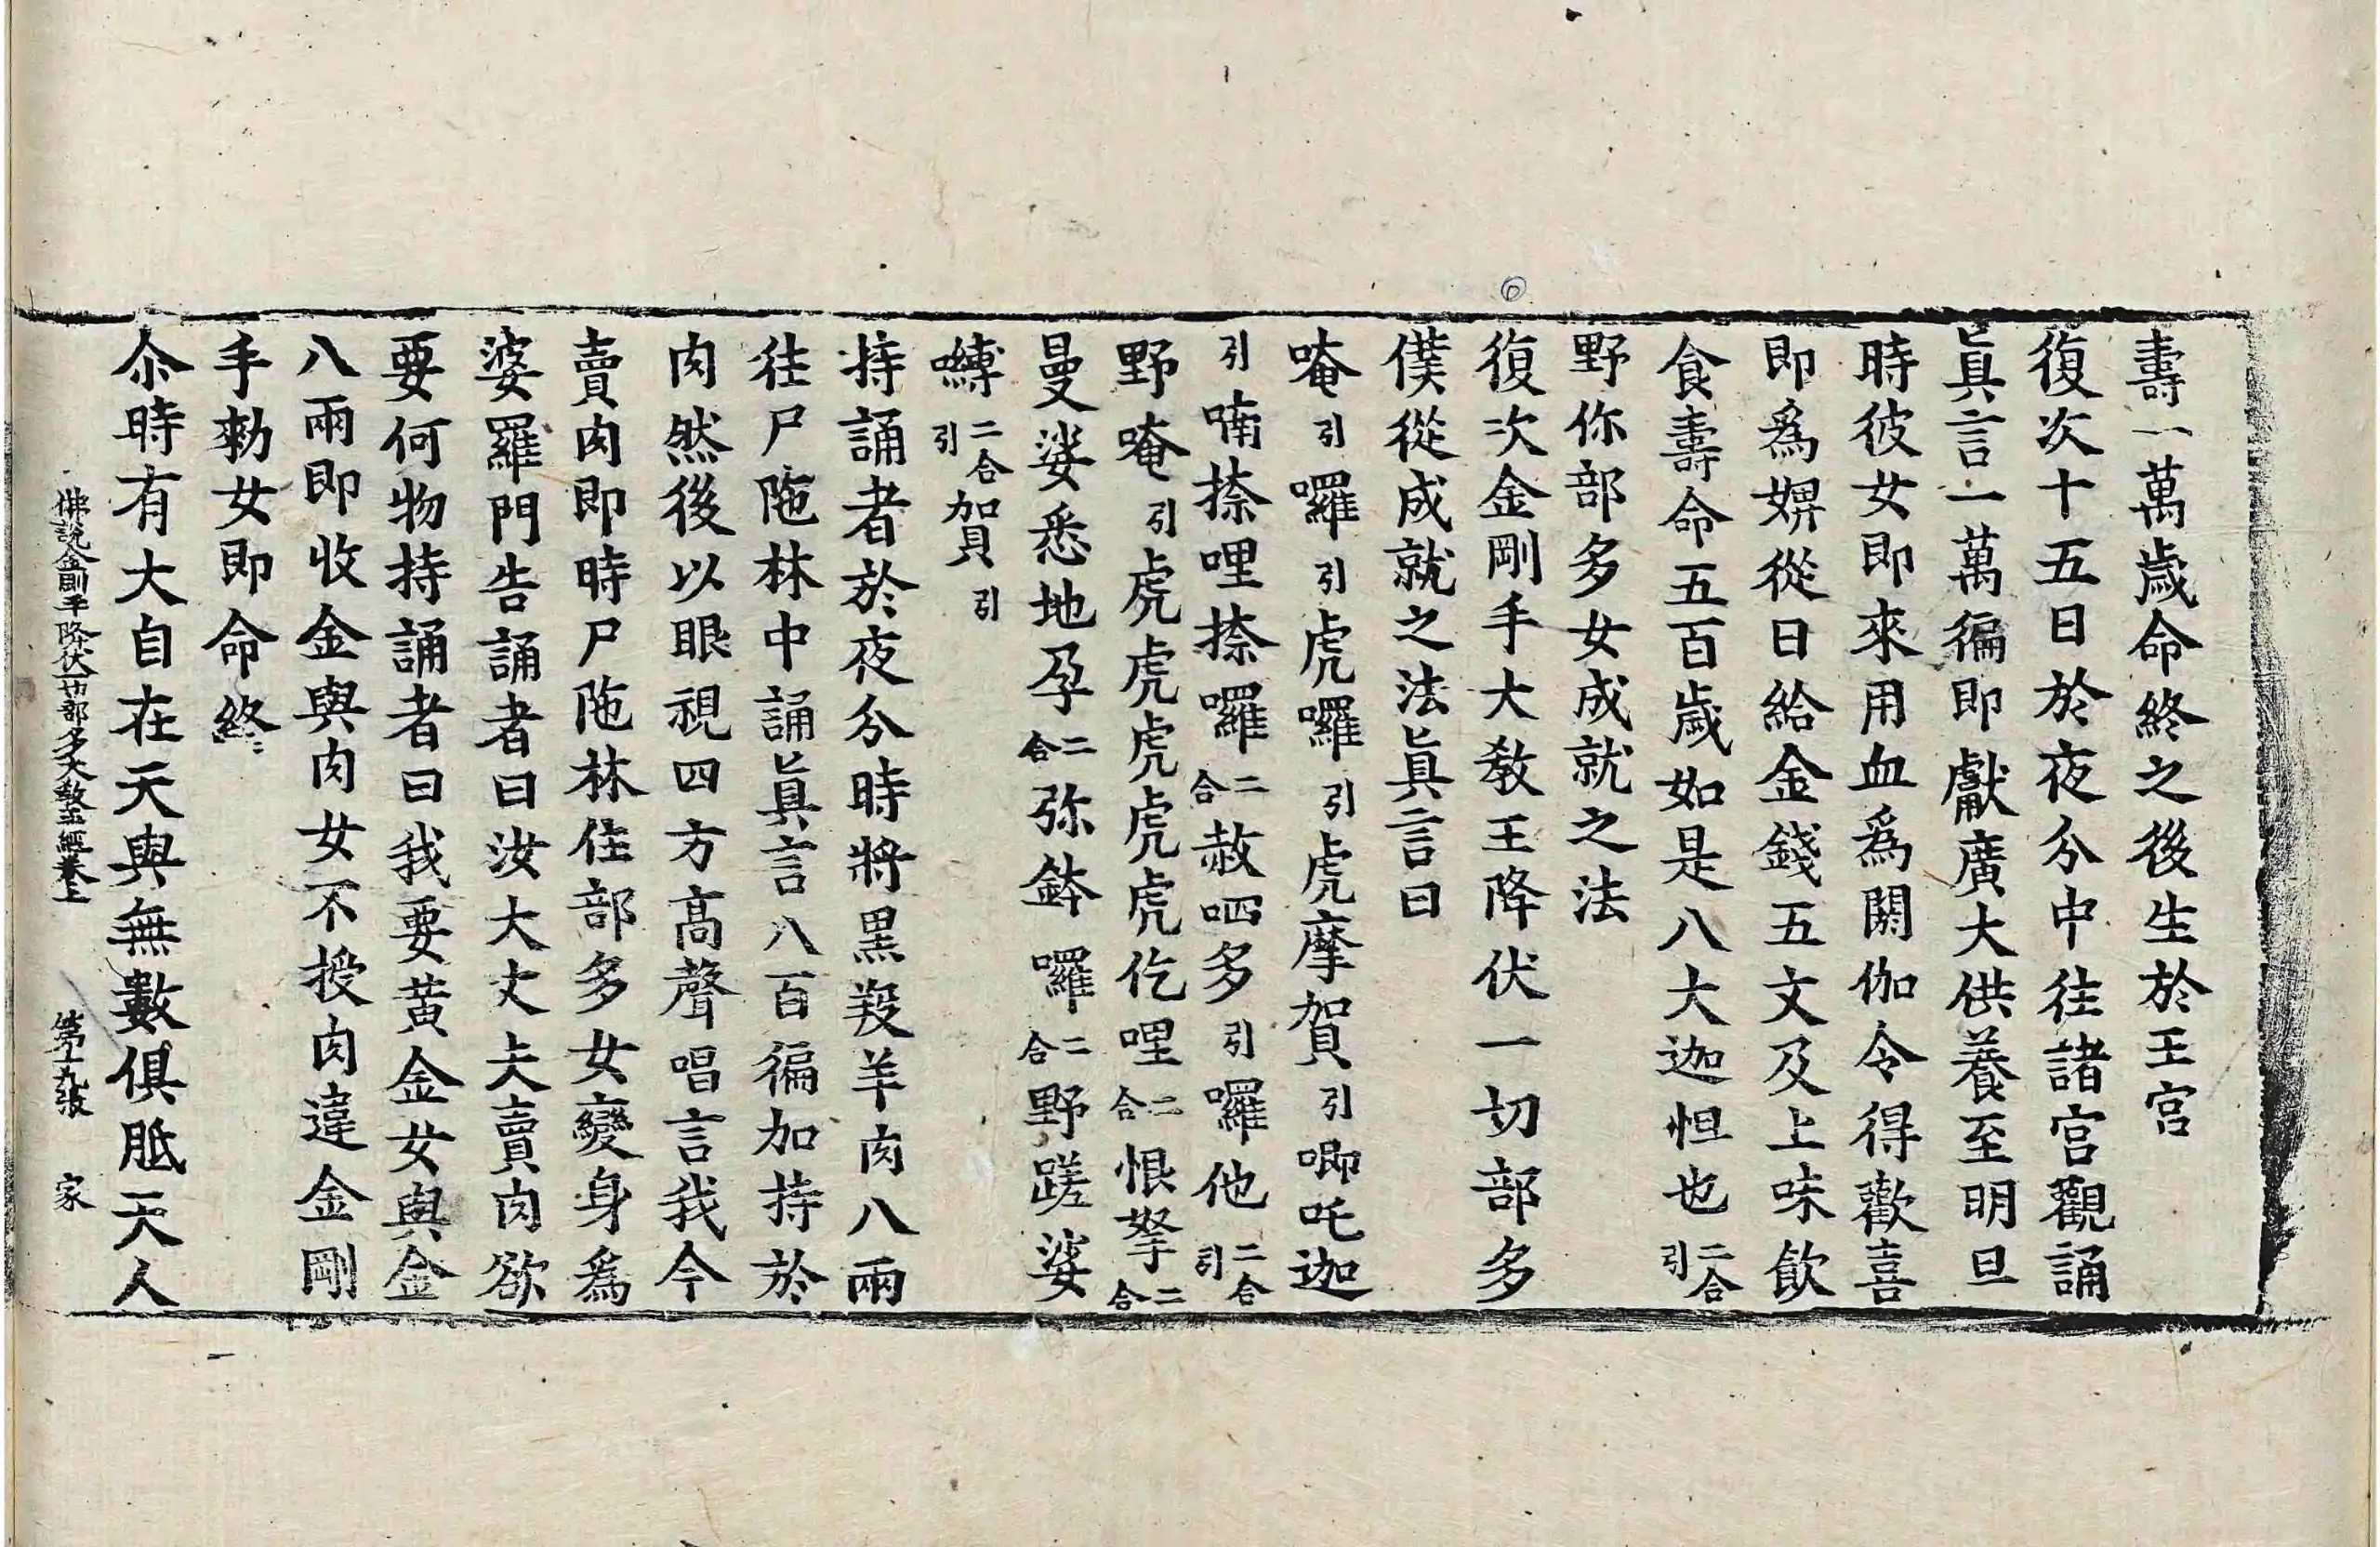 壽一萬歲命終之後生於王宮
復次十五日於夜分中往諸宮觀誦
眞言一萬徧即獻廣大供養至明旦
時彼女即來用血爲閼伽令得歡喜
即爲婢從日給金錢五文及上味飲
食壽命五百歲如是八大迦怛也二合引
野你部多女成就之法
復次金剛手大教王降伏一切部多
僕從成就之法眞言曰
唵引囉引虎囉引虎摩賀引唧吒迦
引喃捺哩捺囉二合赦呬多引囉他二合引
野唵引虎虎虎虎虎仡哩二合恨拏二合
曼娑悉地孕二合弥鉢囉二合野蹉娑
嚩二合引賀引
持誦者於夜分時將黑羖羊肉八兩
往尸陁林中誦眞言八百徧加持於
肉然後以眼視四方高聲唱言我今
賣肉即時尸陁林住部多女變身爲
婆羅門告誦者曰汝大丈夫賣肉欲
要何物持誦者曰我要黄金女與金
八兩即收金與肉女不授肉違金剛
手勑女即命終
尒時有大自在天與無數俱胝天人
佛說金剛手降伏一切部多大教王經卷上 第十九張 家